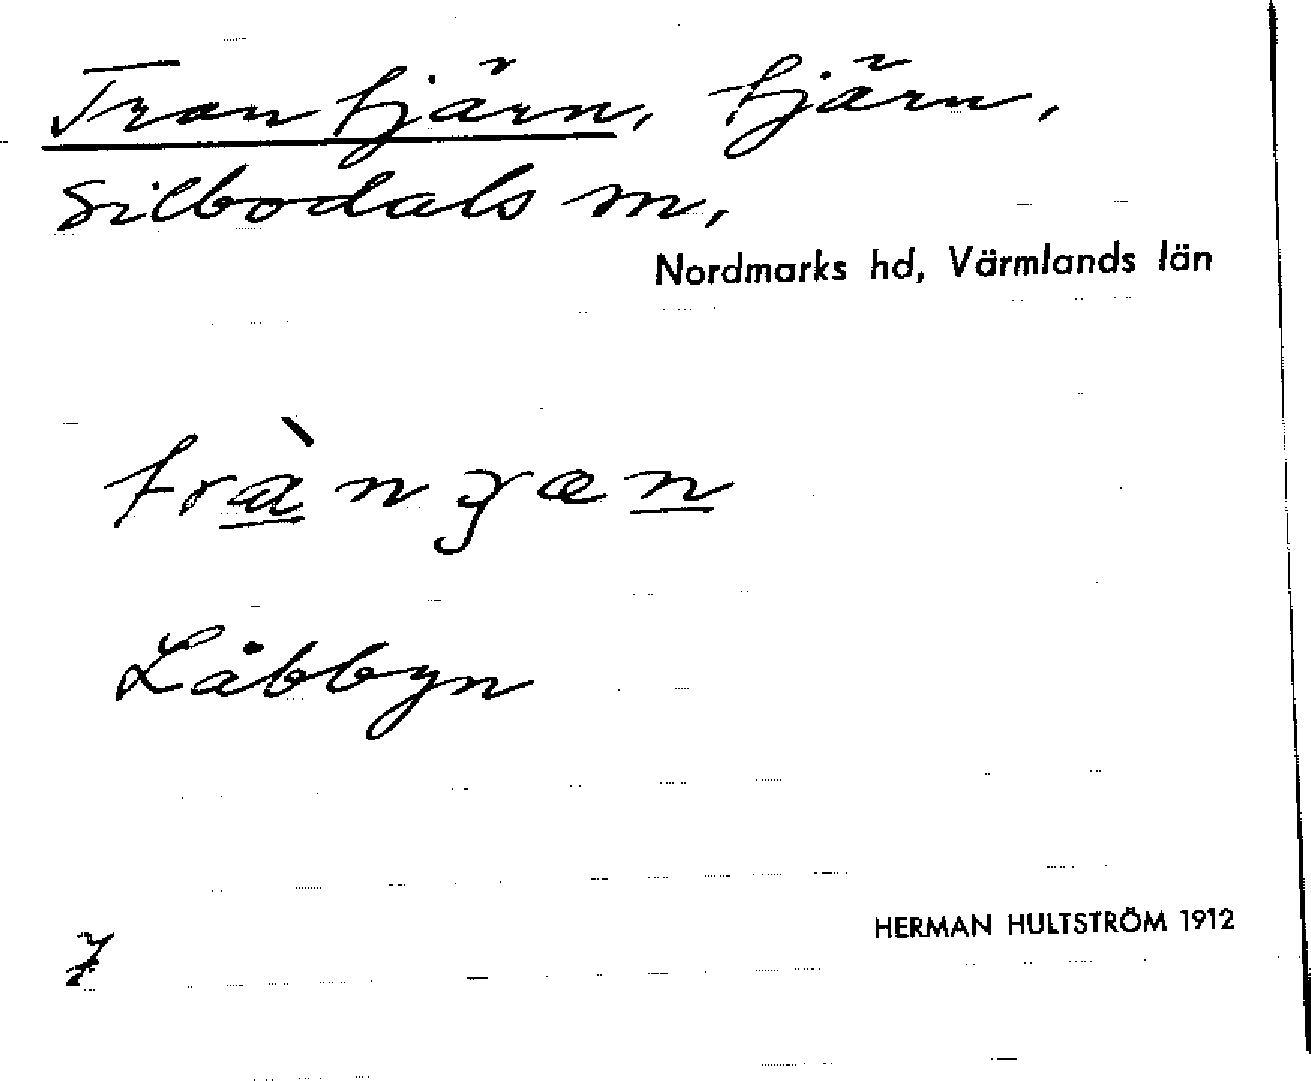 Trantjärn, tjärn,
Silbodals m,
Nordmarks hd, Värmlands län
tràn ȝæn
Låbbyn
HERMAN HULTSTRÖM 1912
7